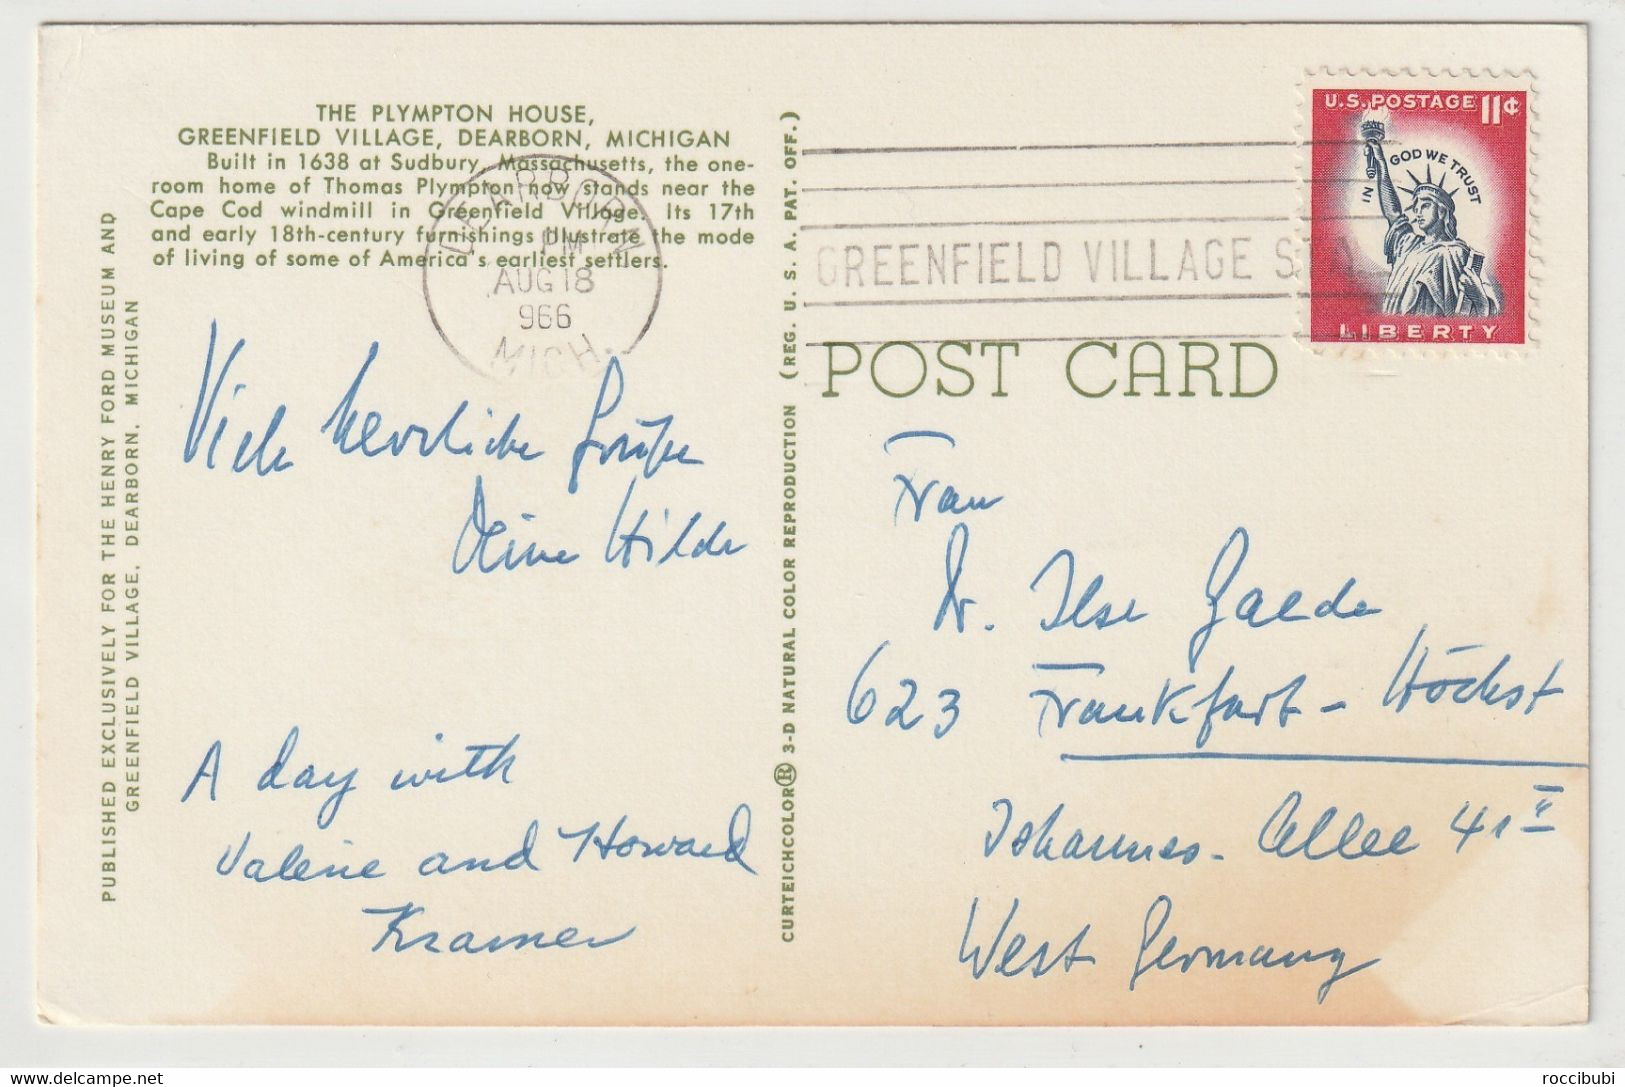 THE PLYMPTON HOUSE,
GREENFIELD VILLAGE, DEARBORN, MICHIGAN
Built in 1638 at Sudbury, Massachusetts, the one-
room home of Thomas Plympton now stands near the
Cape Cod windmill in Greenfield Village. Its 17th
and early 18th-century furnishings illustrate the mode
of living of some of America's earliest settlers.
PUBLISHED EXCLUSIVELY FOR THE HENRY FORD MUSEUM AND
GREENFIELD VILLAGE, DEARBORN, MICHIGAN
DEARBORN
PM
AUG 18
966
MICH.
Viele herzliche Grüße
Deine Hilde
A day with
Valerie and Howard
Kramer
CURTEICHCOLOR® 3-D NATURAL COLOR REPRODUCTION (REG. U. S. A. PAT. OFF.)
GREENFIELD VILLAGE STA
U.S. POSTAGE 11¢
IN GOD WE TRUST
LIBERTY
POST CARD
Frau
Dr. Ilse Gaede
623 Frankfurt-Höchst
Johannes-Allee 41 II
West Germany
roccibubi